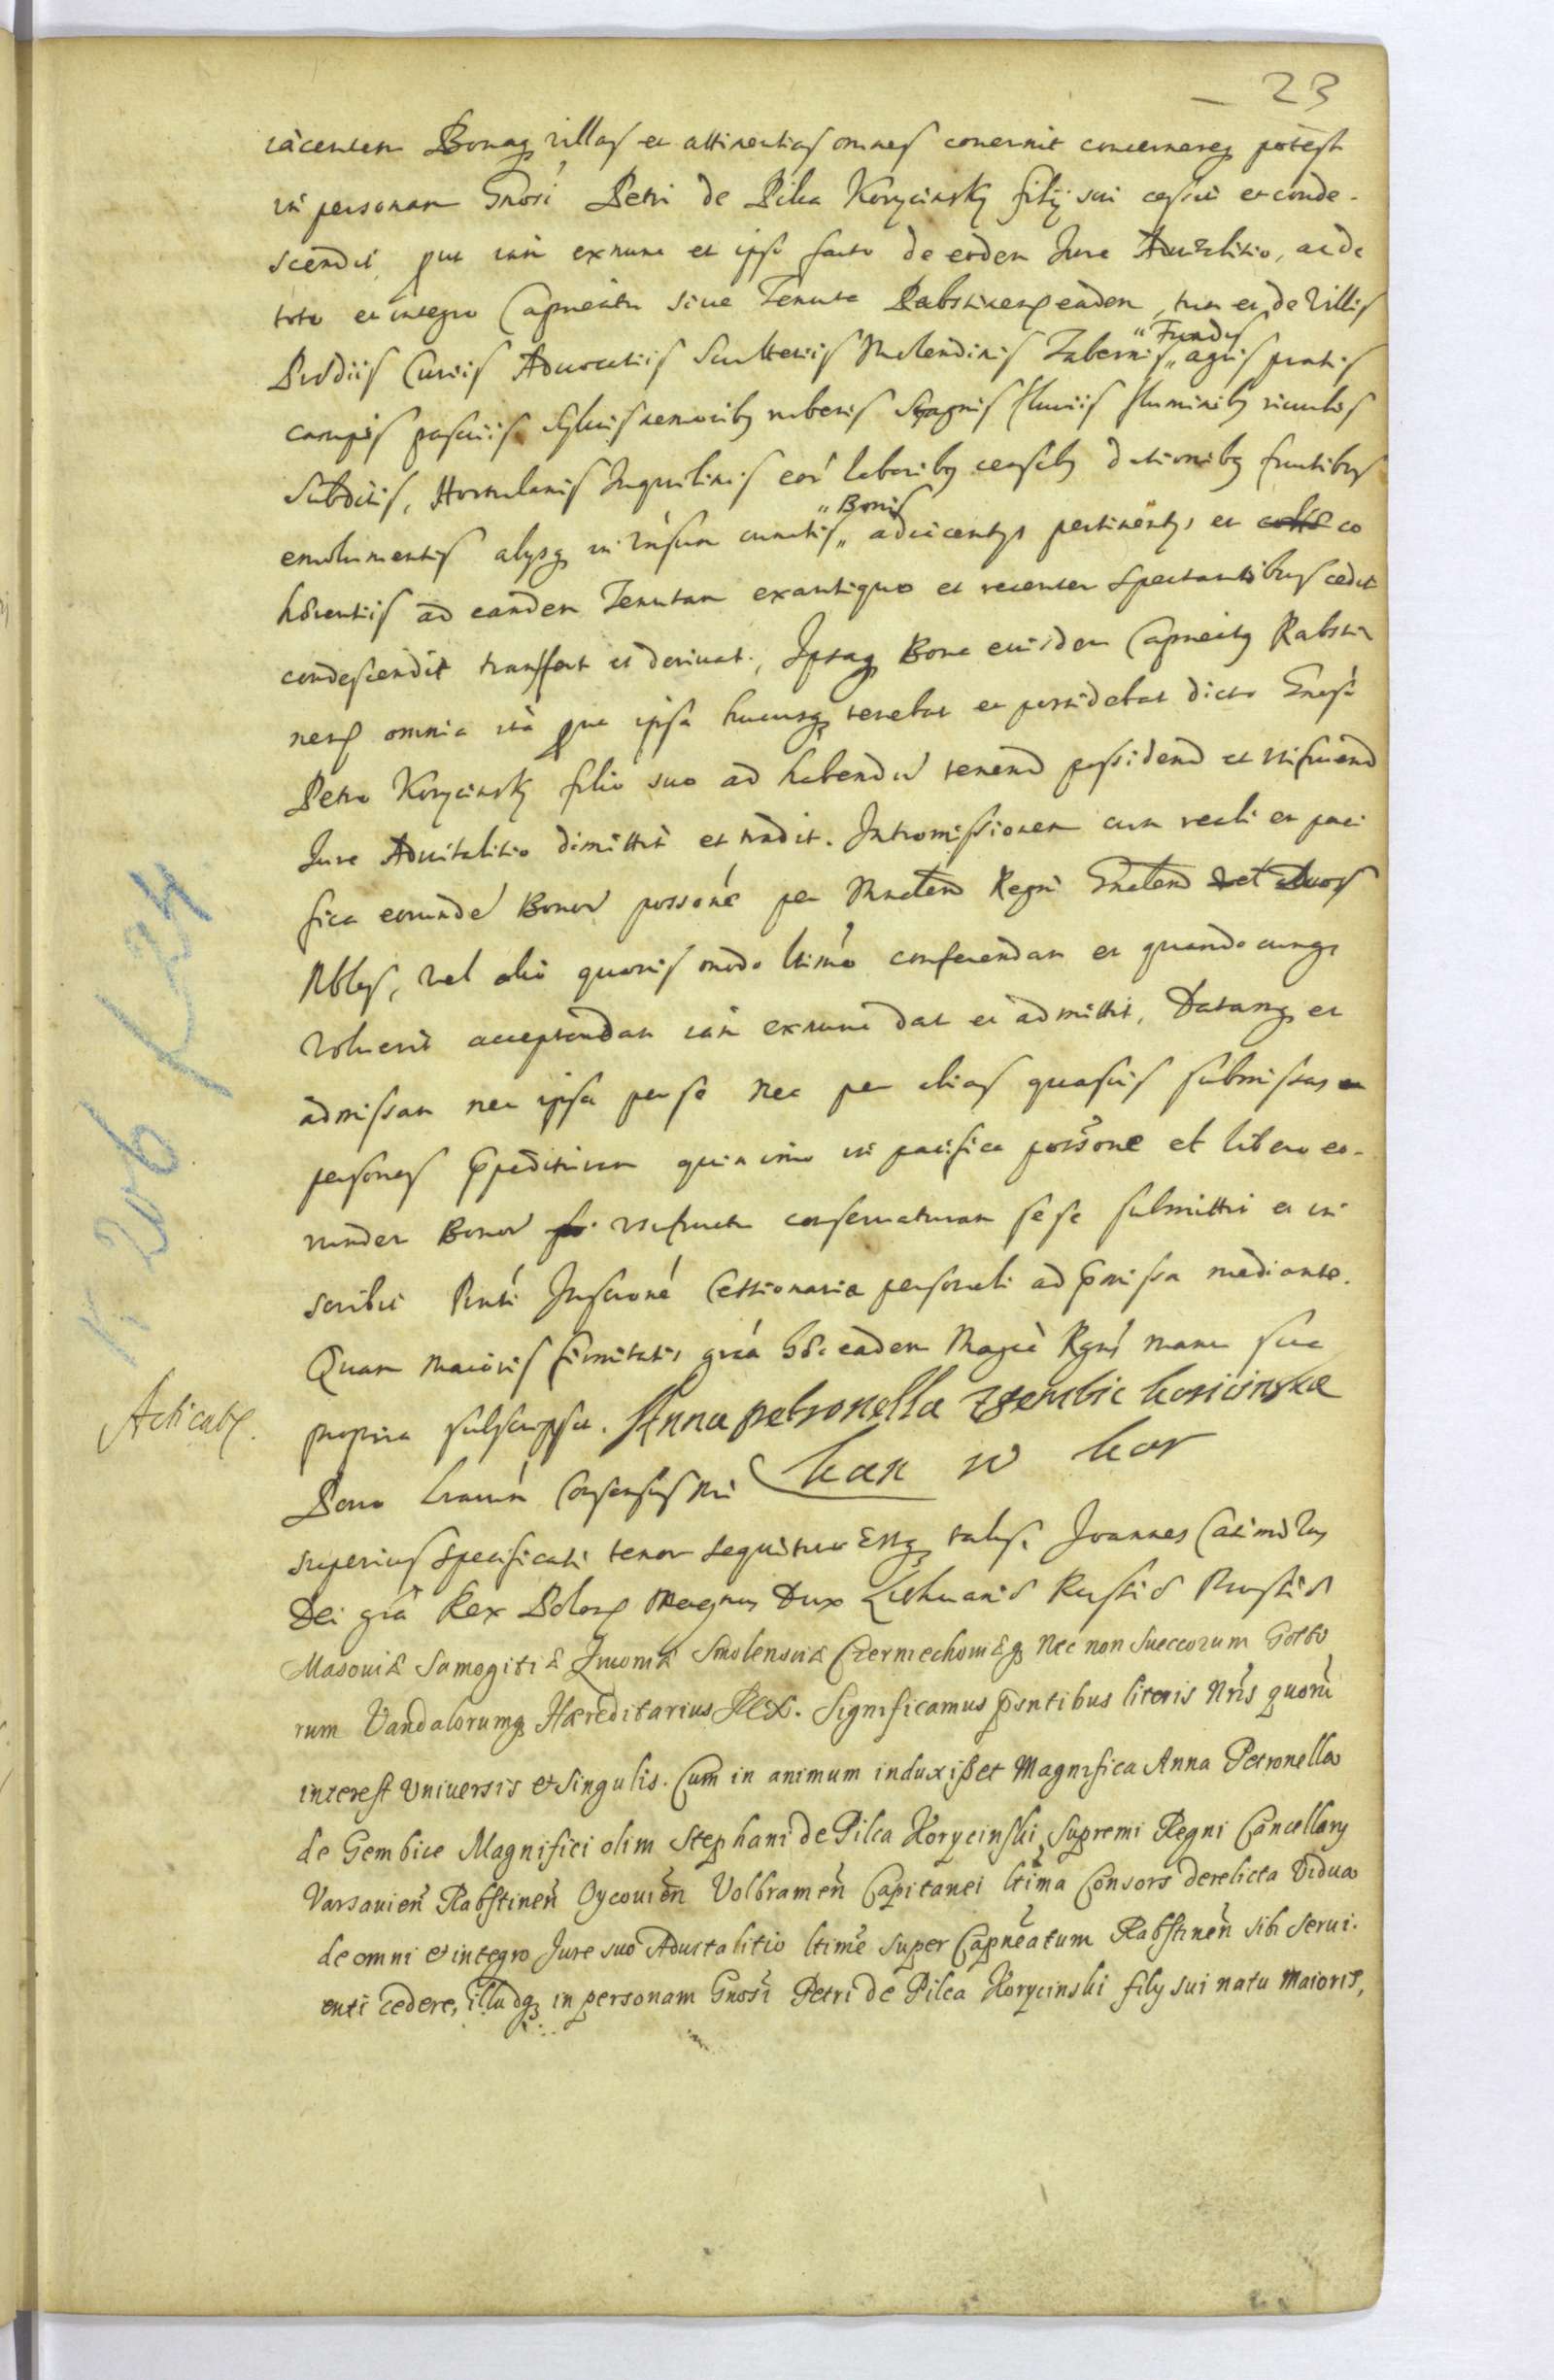 23
iacentem Bonaq villas et attinentias omnes concernit concernereq potest
in personam Gnosi Petri de Pilca Korycinsky filij sui cessit et conde-
scendit, put iam exnunc et ipso facto de eodem Jure Aduitalitio, ac de
toto et integro Capneatu siue Tenuta Rabstinen eadem, tum et de Villis
Prædiis Curiis Aduocatiis Scultetiis Molendinis Tabernis „ agris pratis
„ Fundis
campis pascuis syluis nemoribq rubetis stagnis fluuiis fluminibq riuulis
Subditis, Hortulanis Inquilinis eor laboribq censibq dationibq fructibus
emolumentis alijsq in vnsum cunctis „ adiacentijs pertinentijs et co
„ Bonis
hærentiis ad eandem Tenutam exantiquo et recenter spectantibus cedit
condescendit transfert et deriuat, Ipsaq Bona eiusdem Capneatq Rabsti
nen omnia ita put ipsa hucusq tenebat et possidebat dicto Gnoso
Petro Korycinsky filio suo ad habendu tenend possidend et vtifruend
Jure Aduitalitio dimittit et tradit. Intromissionem cum reali et paci
fica eorunde Bonor possone per Mnrtem Regni Gnalem vel duos
Nbles, vel alio quouis modo ltimo conferendam et quandocunq
voluerit acceptandam iam exnunc dat et admittit, Datamq et
admissam nec ipsa per se nec per alias quasuis submissas
personas Ppedituram quin imo in pacifica possone et libero eo-
rundem Bonor vsufructu conseruaturam sese submittit et in
scribit Pnti Inscrone Cessionaria personali ad Pmissa mediante.
Quam maioris firmitatis gra hæc eadem Magca Rgni manu sua
propria subscripsit. Anna petronella z gembic koricinska
kan w kor
Acticatio.
Porro Consensus Nri
superius specificati tenor sequitur Estq talis. Joannes Casimirus
Dei gra Rex Polon Magnus Dux Lithuaniæ Russiæ Prussiæ
Masouiæ Samogitiæ Liuoniæ Smolensciæ Czerniechouiæq Nec non Sueccorum Gotto
rum Vandalorumq Hæreditarius Rex. Significamus Psntibus literis Nris quoru
interest Vniuersis et Singulis. Cum in animum induxißet Magnifica Anna Petronella
de Gembice Magnifici olim Stephani de Pilca Korycinski Supremi Regni Cancellarij
Varsauien Rabstinen Oycouien Volbramen Capitanei ltima Consors derelicta Vidua
de omni et integro Jure suo Aduitalitio ltime super Capneatum Rabstinen sibi serui-
enti cedere, illudq in personam Gnosi Petri de Pilca Korycinski filij sui natu maioris,